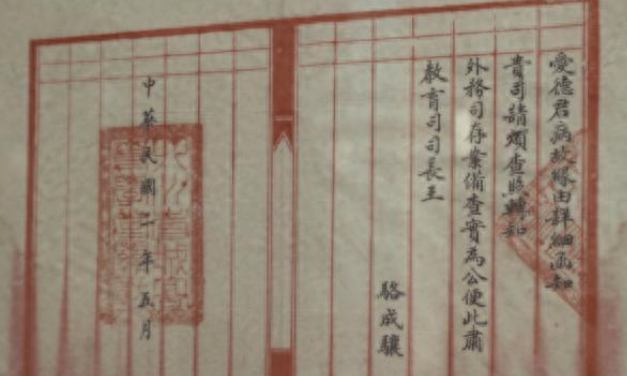 愛德君病故緣由詳細函知
貴司請煩查照轉知
外務司存業備查實為公便此肅
教育司司長王
駱成驤
中華民國二年五月